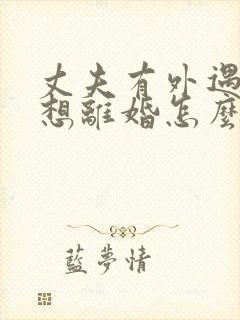 丈夫有外遇
想離婚怎麼
藍夢情